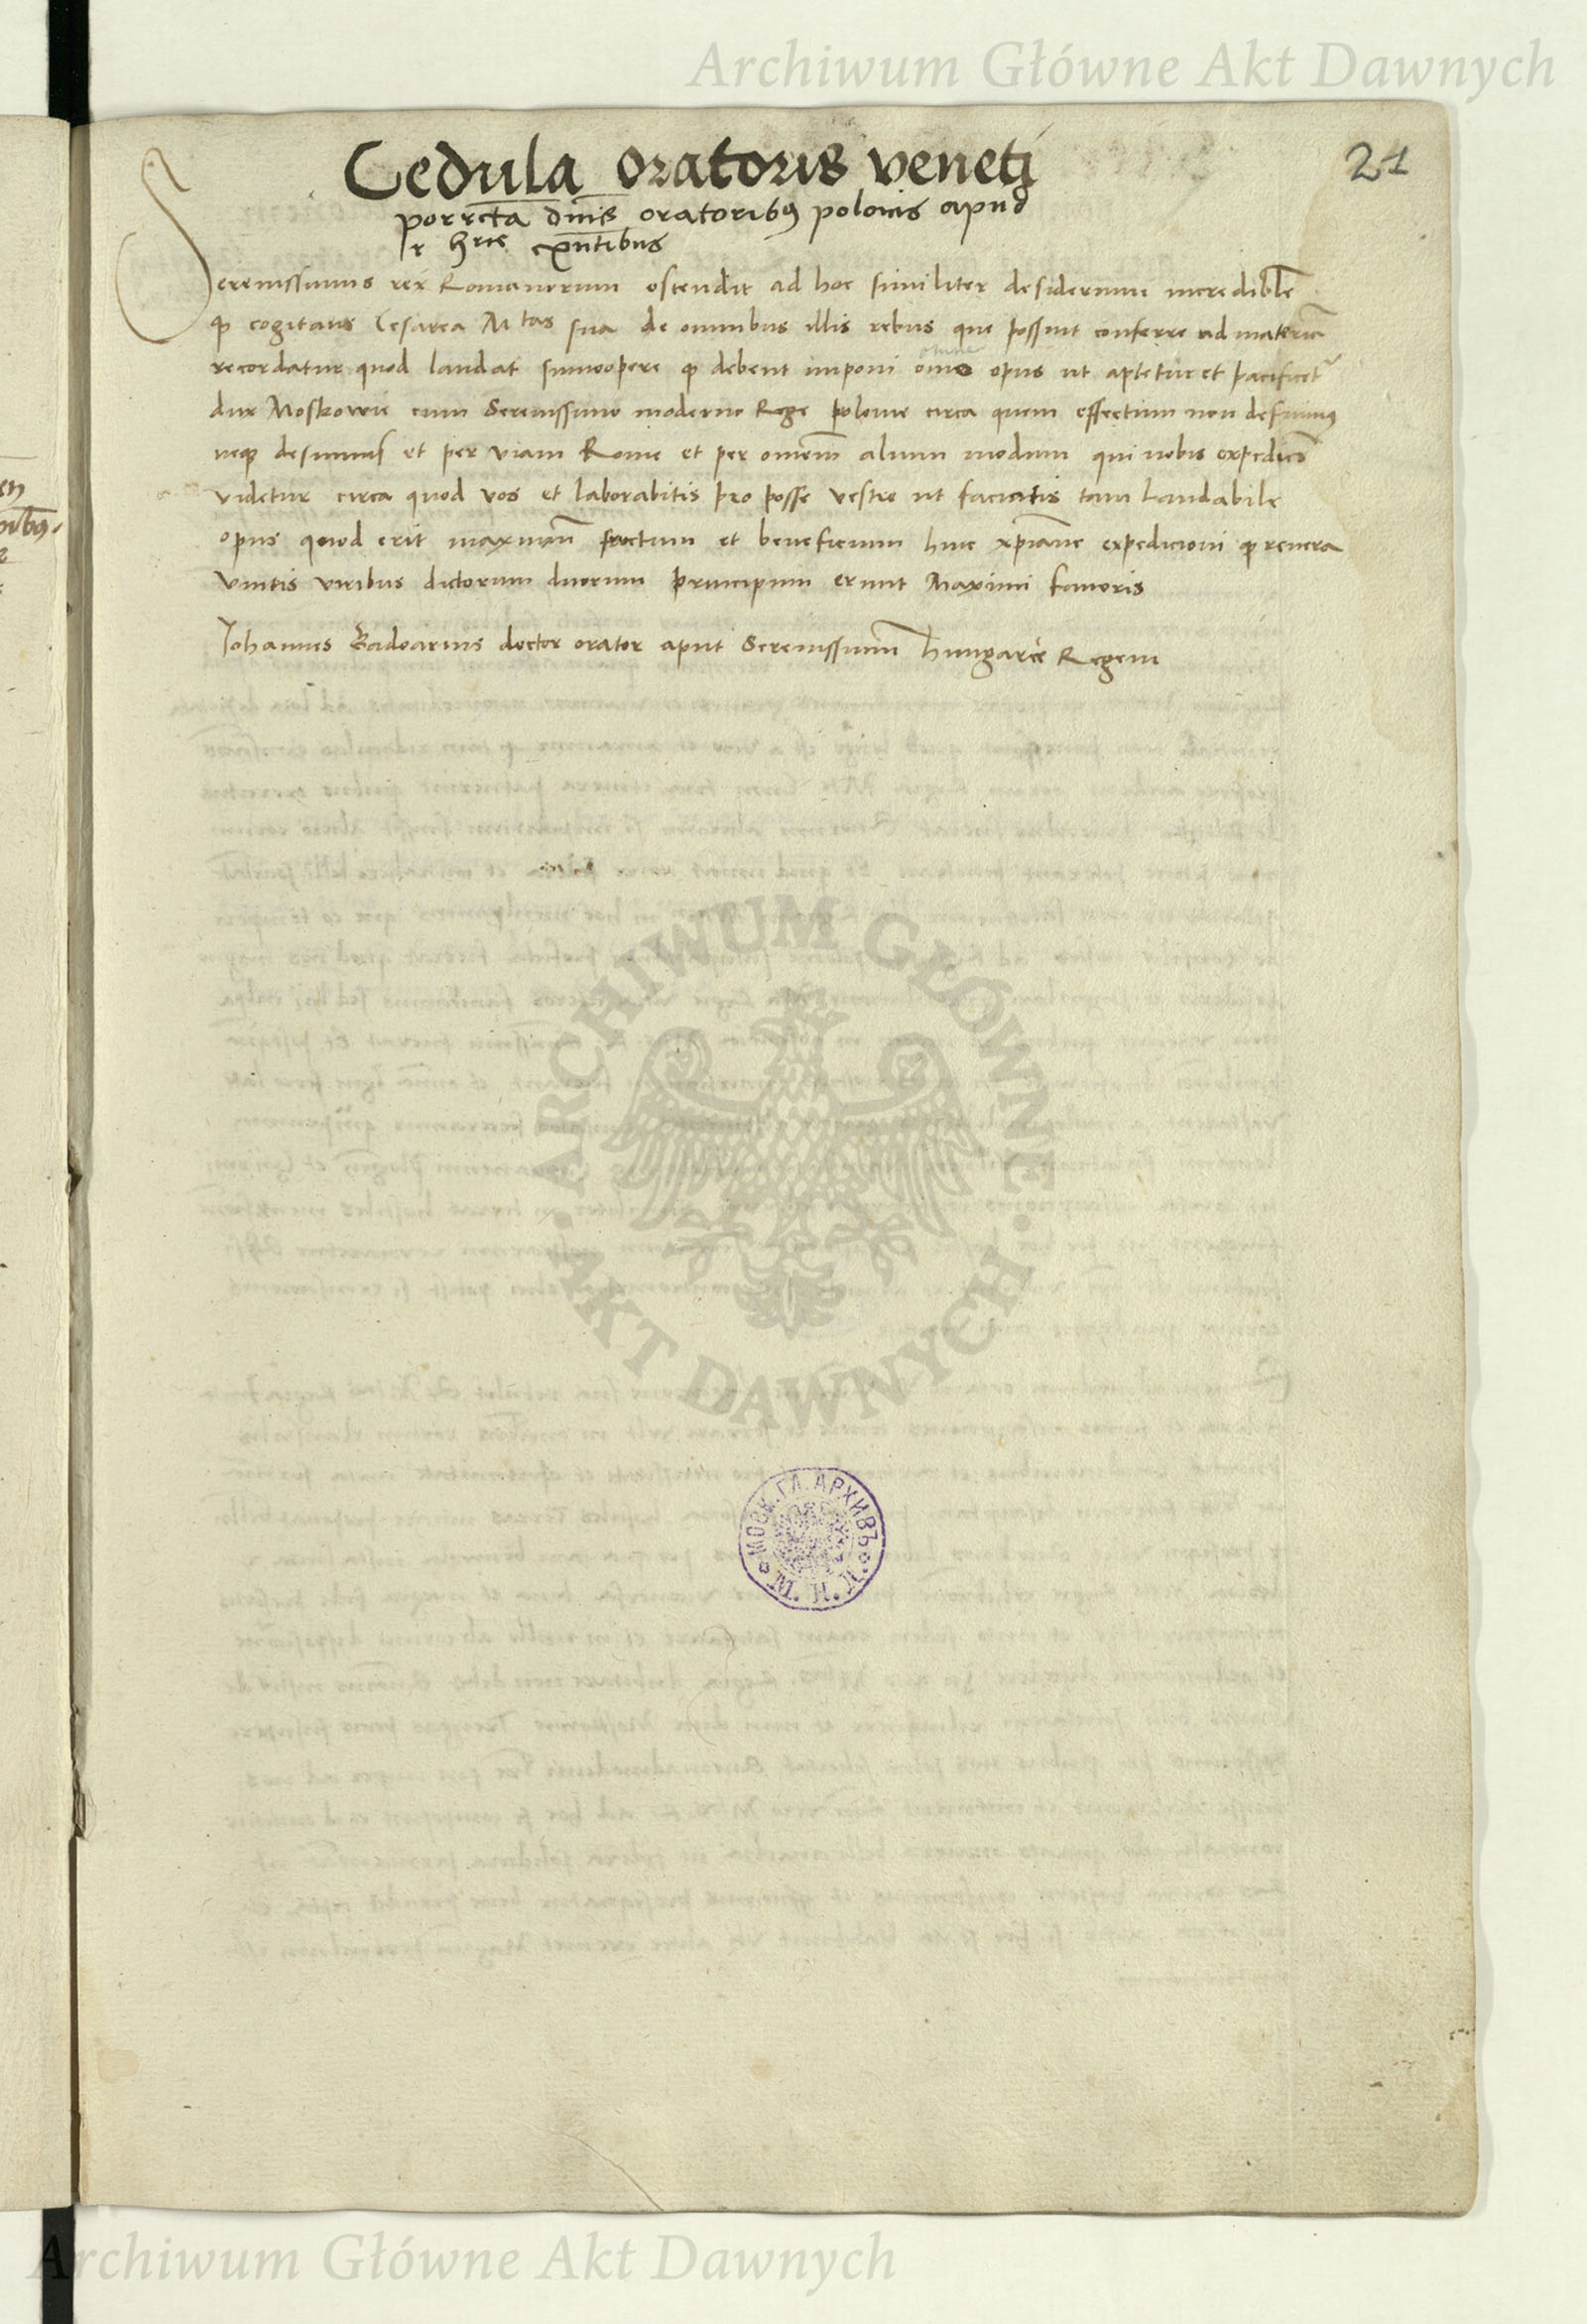 Archiwum Główne Akt Dawnych
21
Cedula oratoris veneti
porrecta dnis oratoribꝯ polonis apud
r hrie exntibus
Serenissimus rex Romanorum ostendit ad hoc similiter desiderium incredibile
ꝙ cogitans Cesarea Mtas sua de omnibus illis rebus que possint conferre ad materiã
recordatur quod laudat summopere ꝙ debent imponi ome opus ut aptetur et pacificet
dux Moskowie cum Serenissimo moderno Rege polonie circa quem effectum non defuimꝯ
neqꝫ desumus et per viam Rome et per omnem alium modum qui nobis expediens
videtur circa quod vos et laborabitis pro posse vestro ut faciatis tam Laudabile
opus quod erit maximũ fructum et beneficium huic xpiane expedicioni ꝙ revera
Unitis viribus dictorum duorum principum erunt Maximi favoris
Johannes Badoarius doctor orator aput Serenissimũ hungarie Regem
ARCHIWUM GŁÓWNE
AKT DAWNYCH
МОСК. ГЛ. АРХИВЪ
М. И. Д.
Archiwum Główne Akt Dawnych